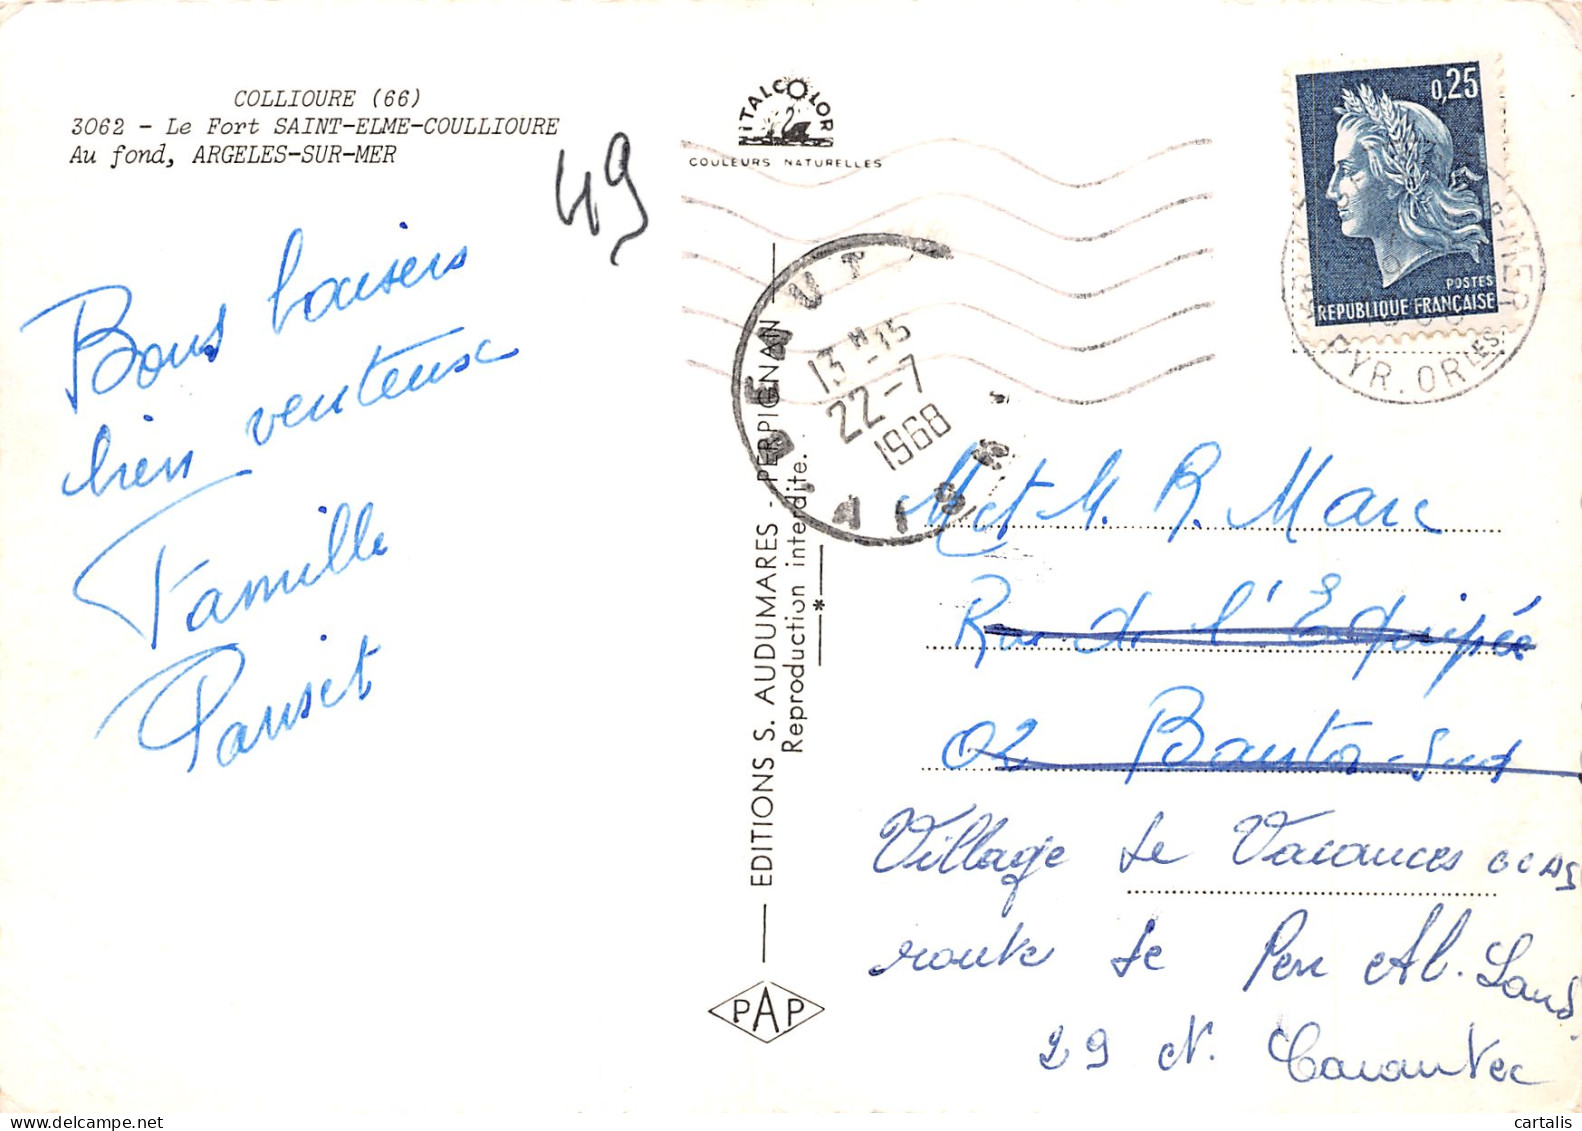 COLLIOURE (66)
3062 - Le Fort SAINT-ELME-COULLIOURE
Au fond, ARGELES-SUR-MER
49
Bons baisers
bien venteux
Famille
Pauset
ITALCOLOR
COULEURS NATURELLES
EDITIONS S. AUDUMARES - PERPIGNAN
Reproduction interdite.
*
PAP
13H15
22-7
1968
0,25
POSTES
REPUBLIQUE FRANÇAISE
PYR. ORLES
M et M. R. Marc
Rue de l'Equipée
02 Sud
Village de Vacances OCAS
route de Pen Al. Lann
29 N. Carantec
cartalis